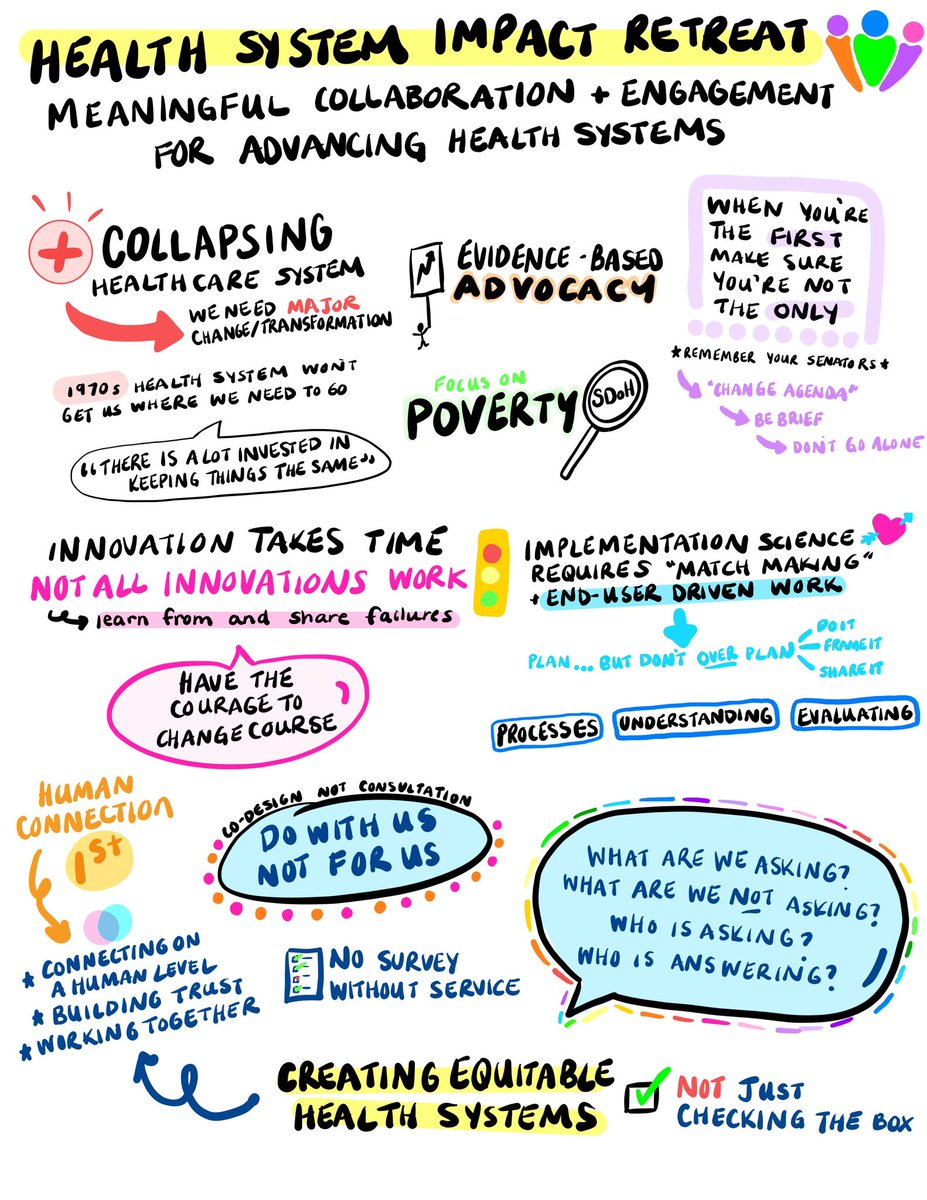 HEALTH SYSTEM IMPACT RETREAT
MEANINGFUL COLLABORATION + ENGAGEMENT
FOR ADVANCING HEALTH SYSTEMS
COLLAPSING
HEALTHCARE SYSTEM
WE NEED MAJOR
CHANGE/TRANSFORMATION
1970s HEALTH SYSTEM WON'T
GET US WHERE WE NEED TO GO
"THERE IS A LOT INVESTED IN
KEEPING THINGS THE SAME"
EVIDENCE-BASED
ADVOCACY
FOCUS ON
POVERTY
SDoH
WHEN YOU'RE
THE FIRST
MAKE SURE
YOU'RE NOT
THE ONLY
*REMEMBER YOUR SENATORS*
"CHANGE AGENDA"
BE BRIEF
DON'T GO ALONE
INNOVATION TAKES TIME
NOT ALL INNOVATIONS WORK
learn from and share failures
HAVE THE
COURAGE TO
CHANGE COURSE
IMPLEMENTATION SCIENCE
REQUIRES "MATCH MAKING"
+ END-USER DRIVEN WORK
PLAN... BUT DON'T OVER PLAN
DO IT
FRAME IT
SHARE IT
PROCESSES
UNDERSTANDING
EVALUATING
HUMAN
CONNECTION
1st
* CONNECTING ON
A HUMAN LEVEL
* BUILDING TRUST
* WORKING TOGETHER
CO-DESIGN NOT CONSULTATION
DO WITH US
NOT FOR US
NO SURVEY
WITHOUT SERVICE
WHAT ARE WE ASKING?
WHAT ARE WE NOT ASKING?
WHO IS ASKING?
WHO IS ANSWERING?
CREATING EQUITABLE
HEALTH SYSTEMS
NOT JUST
CHECKING THE BOX